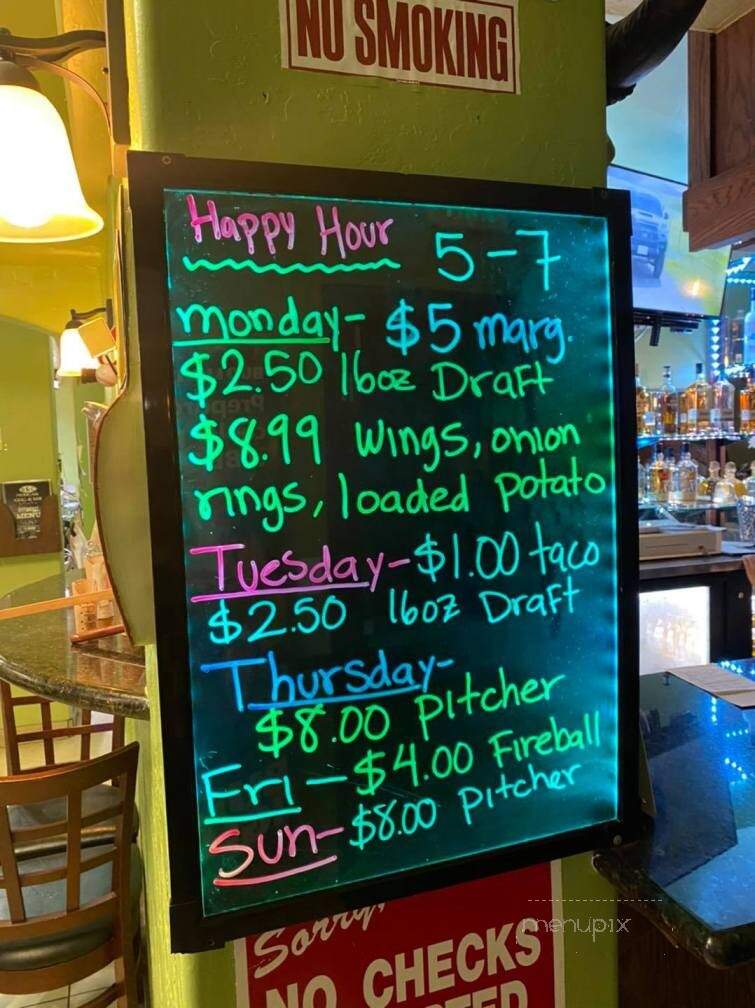 NO SMOKING
Happy Hour 5-7
monday- $5 marg.
$2.50 16oz Draft
$8.99 wings, onion
rings, loaded potato
Tuesday- $1.00 taco
$2.50 16oz Draft
Thursday-
$8.00 Pitcher
Fri - $4.00 Fireball
Sun- $8.00 Pitcher
Sorry,
NO CHECKS
menupix
MENU